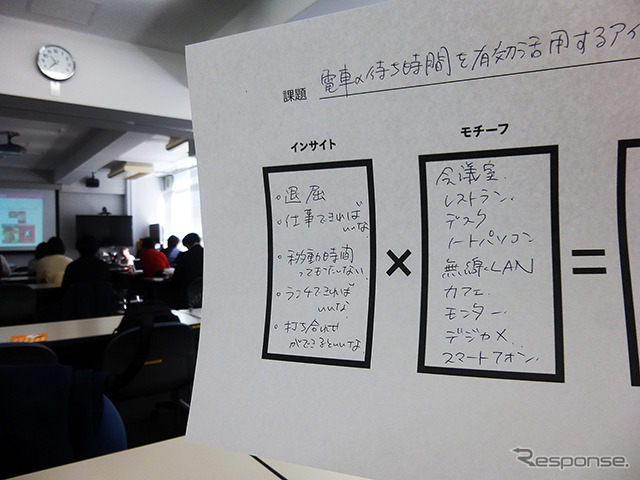 課題 電車の待ち時間を有効活用するアイ
インサイト
・退屈
・仕事できれば
いいな。
・移動時間
ってもったいない。
・ランチできれば
いいな。
・打ち合わせ
ができるといいな。
×
モチーフ
会議室.
レストラン.
デスク
ノートパソコン
無線LAN
カフェ.
モニター.
デジカメ.
スマートフォン.
=
Response.